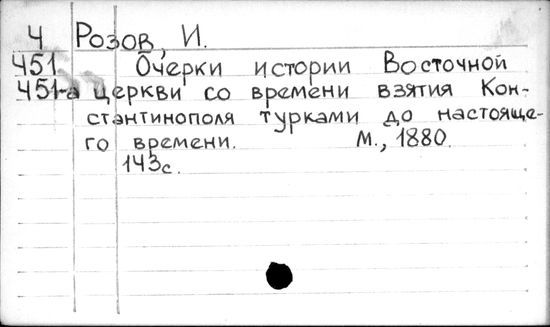 Ч Розов, И.
451 Очерки истории Восточной
451-а церкви со времени взятия Кон-
стантинополя турками до настояще-
го времени. М., 1880.
143с.